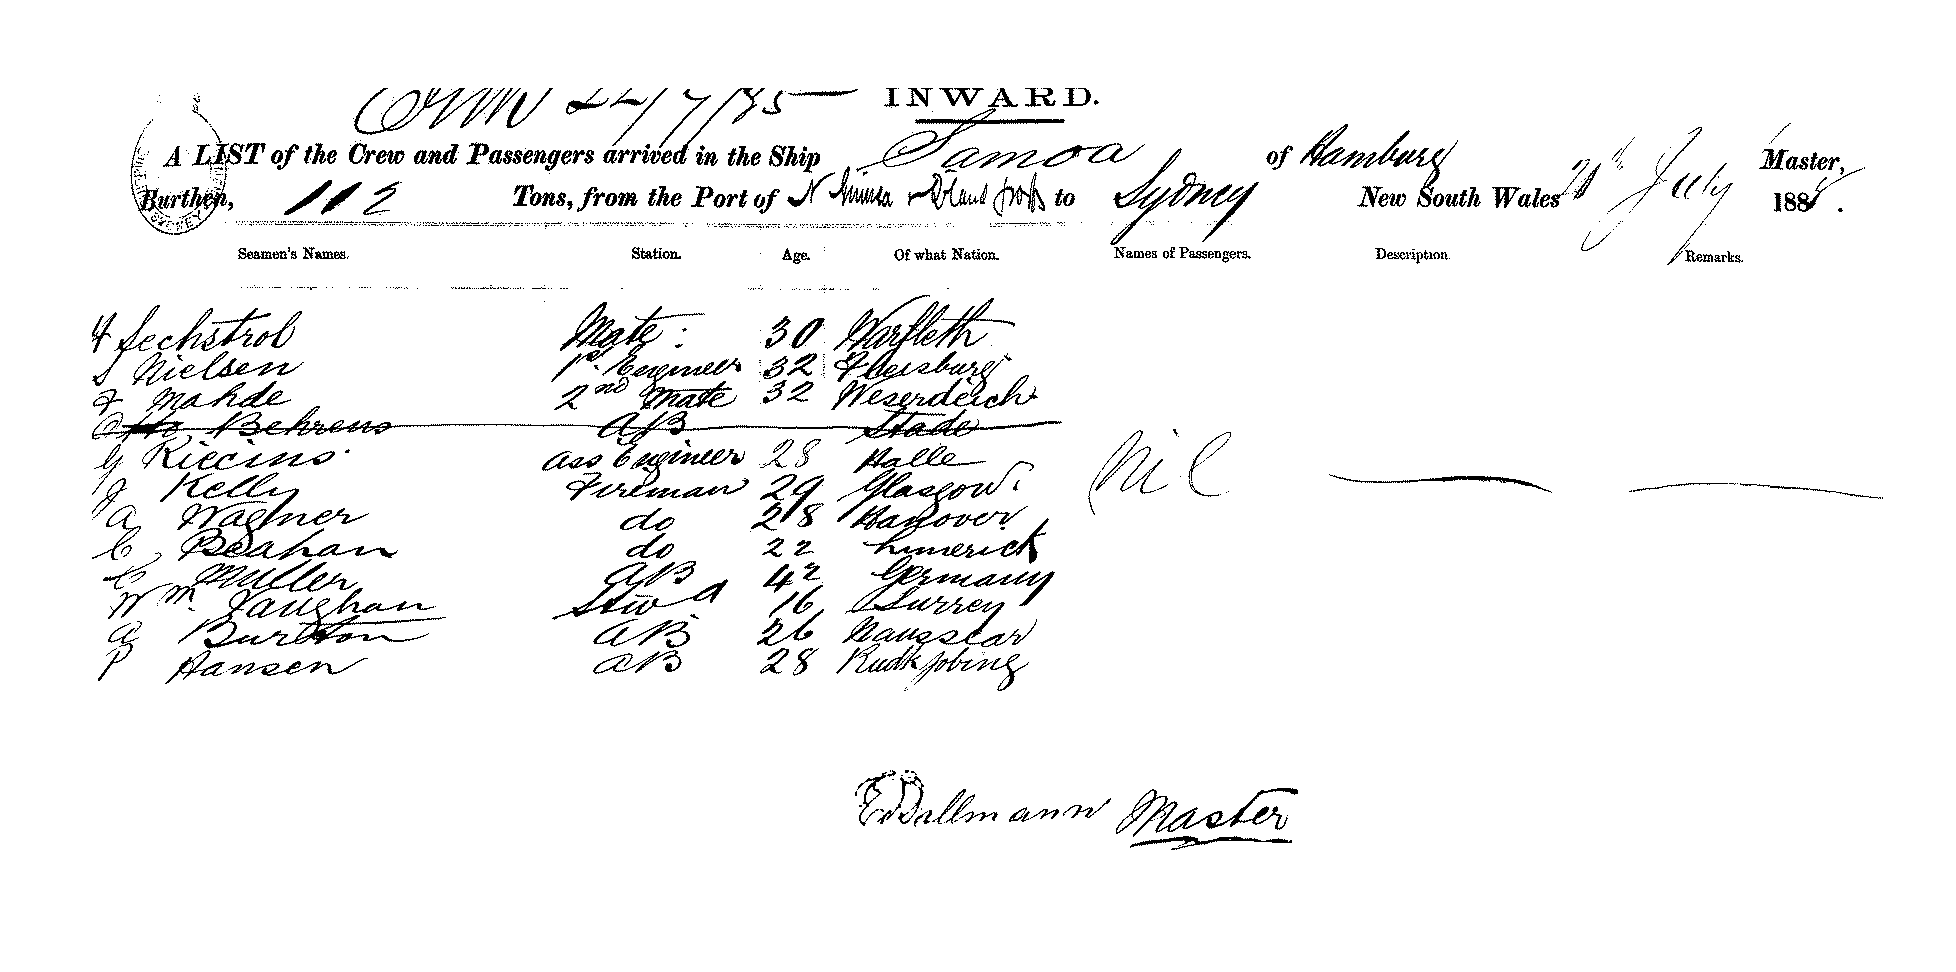 22/7/85 INWARD.
A LIST of the Crew and Passengers arrived in the Ship Samoa of Hamburg Master,
Burthen, 112 Tons, from the Port of N Guinea to Sydney New South Wales July 1885.
Seamen's Names. Station. Age. Of what Nation. Names of Passengers. Description. Remarks.
H Sechstrol Mate: 30 Warfleth
S Nielsen 1st Engineer 32
F Mahde 2nd Mate 32 Weserdeich
Otto Behrens AB Stade
G Riecins Ass Engineer 28 Halle
J Kelly Fireman 29 Glasgow Nil
A Wagner do 28 Hanover
C Beahan do 22 Limerick
C Muller AB 42 Germany
Wm Vaughan Stwd 16 Surrey
A Burston AB 26
P Hansen AB 28 Rudkjobing
E Dallmann Master